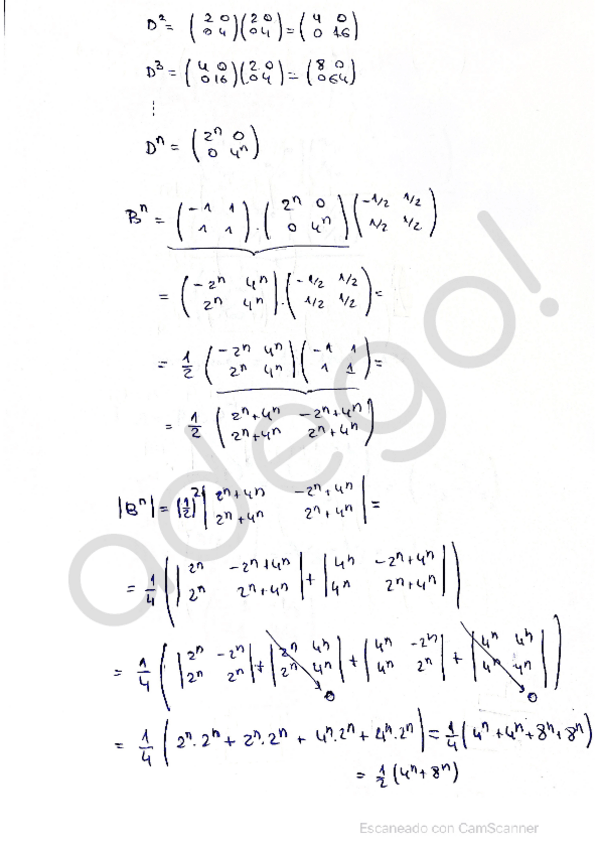 D² = (2 0 / 0 4)(2 0 / 0 4) = (4 0 / 0 16)
D³ = (4 0 / 0 16)(2 0 / 0 4) = (8 0 / 0 64)
⋮
Dⁿ = (2ⁿ 0 / 0 4ⁿ)
Bⁿ = (-1 1 / 1 1) · (2ⁿ 0 / 0 4ⁿ)(-1/2 1/2 / 1/2 1/2)
= (-2ⁿ 4ⁿ / 2ⁿ 4ⁿ) · (-1/2 1/2 / 1/2 1/2) =
= 1/2 (-2ⁿ 4ⁿ / 2ⁿ 4ⁿ)(-1 1 / 1 1) =
= 1/2 (2ⁿ+4ⁿ -2ⁿ+4ⁿ / 2ⁿ+4ⁿ 2ⁿ+4ⁿ)
|Bⁿ| = (1/2)² |2ⁿ+4ⁿ -2ⁿ+4ⁿ / 2ⁿ+4ⁿ 2ⁿ+4ⁿ| =
= 1/4 (|2ⁿ -2ⁿ+4ⁿ / 2ⁿ 2ⁿ+4ⁿ| + |4ⁿ -2ⁿ+4ⁿ / 4ⁿ 2ⁿ+4ⁿ|)
= 1/4 (|2ⁿ -2ⁿ / 2ⁿ 2ⁿ| + |2ⁿ 4ⁿ / 2ⁿ 4ⁿ| + |4ⁿ -2ⁿ / 4ⁿ 2ⁿ| + |4ⁿ 4ⁿ / 4ⁿ 4ⁿ|)
0 0
= 1/4 (2ⁿ·2ⁿ + 2ⁿ·2ⁿ + 4ⁿ·2ⁿ + 4ⁿ·2ⁿ) = 1/4 (4ⁿ + 4ⁿ + 8ⁿ + 8ⁿ)
= 1/2 (4ⁿ + 8ⁿ)
adego!
Escaneado con CamScanner